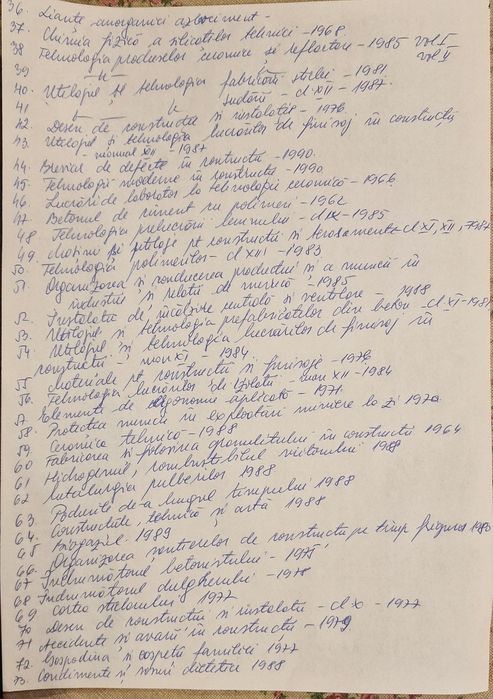 36. Lianti anorganici azbociment -
37. Chimia fizică a silicaților tehnici - 1968.
38. Tehnologia produselor ceramice și refractare - 1985 vol I
39 —"— vol II
40. Utilajul și tehnologia fabricării sticlei - 1981
41 —"— —"— sudării - cl XII - 1987.
42. Desen de construcții și instalații - 1976
43. Utilajul și tehnologia lucrărilor de finisaj în construcții
manual XII - 1987
44. Breviar de defecte în construcții - 1990.
45. Tehnologii moderne în construcții - 1990
46. Lucrări de laborator la tehnologia ceramică - 1966
47. Betonul de ciment cu polimeri - 1962
48. Tehnologia prelucrării lemnului - cl IX - 1985
49. Mașini și utilaje pt construcții și terasamente - cl XI, XII, 1987
50. Tehnologia polimerilor - cl XIII - 1983
51. Organizarea și conducerea producției și a muncii în
industrie și relații de muncă - 1985
52. Instalații de încălzire centrală și ventilare - 1988
53. Utilajul și tehnologia prefabricatelor din beton - cl XI - 1981
54. Utilajul și tehnologia lucrărilor de finisaj în
construcții - man XI - 1984
55. Materiale pt construcții și finisaje - 1976
56. Tehnologia lucrărilor de izolații - man XII - 1984
57. Elemente de ergonomie aplicată - 1971.
58. Protecția muncii în exploatări miniere la zi 1970
59. Ceramica tehnică - 1988
60 Fabricarea și folosirea granulitului în construcții 1964
61 Hidrogenul, combustibilul viitorului 1988
62 Metalurgia pulberilor 1988
63. Podurile de-a lungul timpului 1988
64. Construcțiile, tehnică și artă 1988
65 Biogazul 1989
66. Organizarea șantierelor de construcții pe timp friguros 1980
67 Îndrumătorul betonistului - 1971
68 Îndrumătorul dulgherului - 1978
69 Cartea sticlarului 1972
70 Desen de construcții și instalații - cl X - 1977
71 Accidente și avarii în construcții - 1979
72. Gospodina și oaspeții familiei 1977
73. Condimente și sosuri dietetice 1988